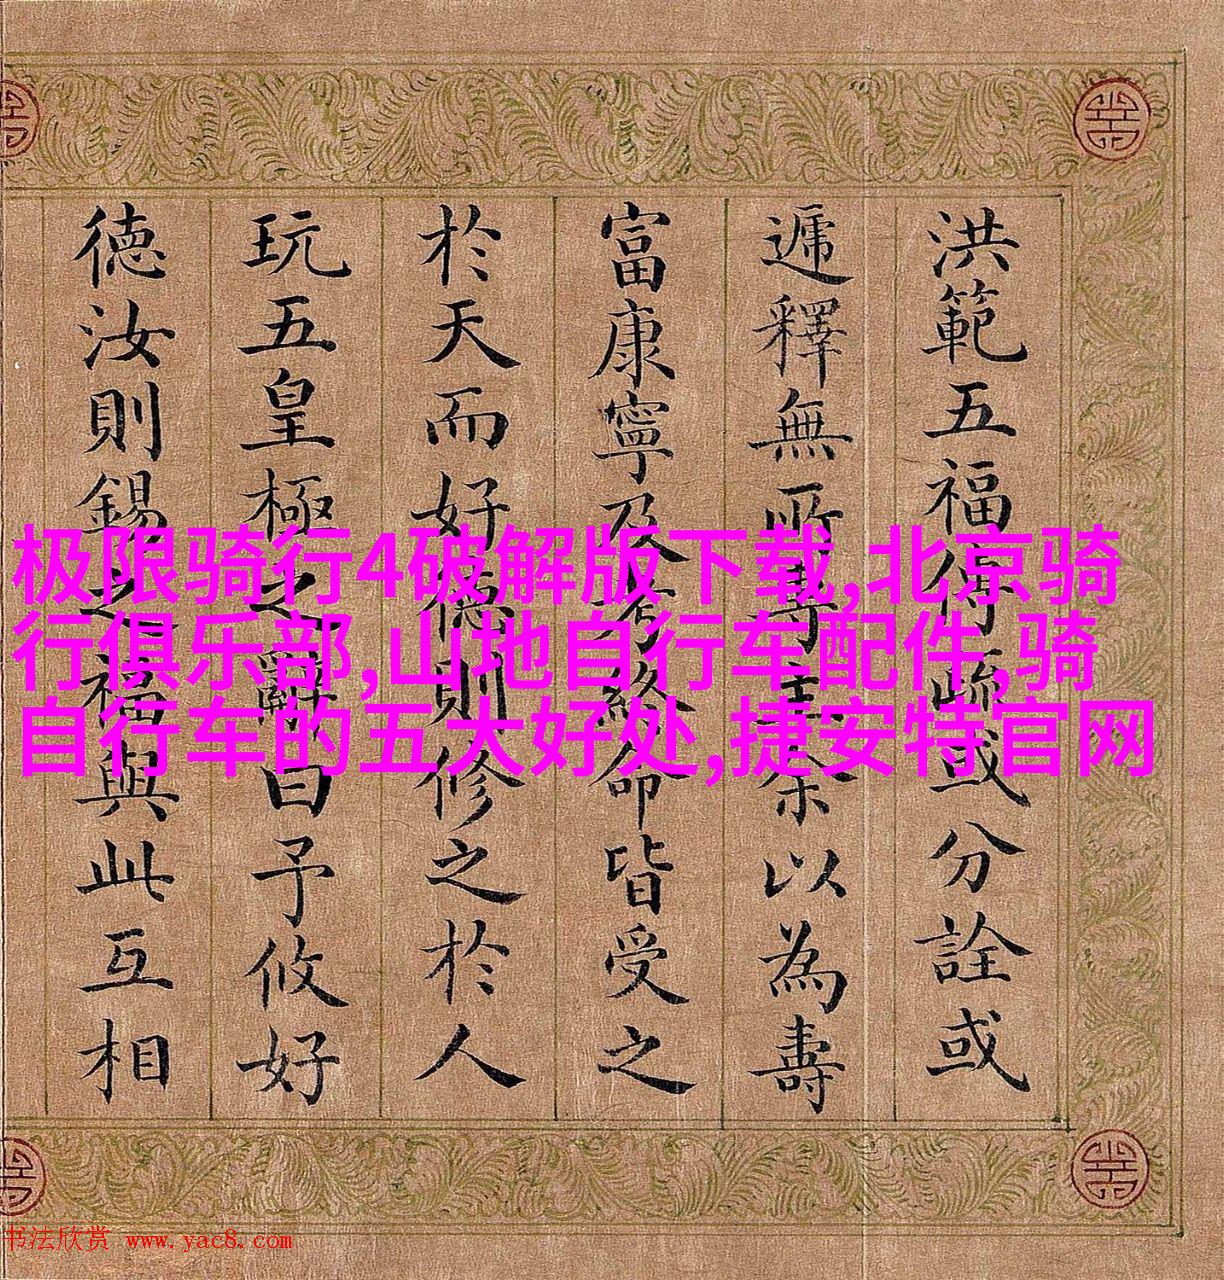 洪範五福傳疏或分詮或
遞釋無所專主余以為壽
富康寧及考終命皆受之
於天而好德則修之於人
玩五皇極之辭曰予攸好
德汝則錫之福與此互相
极限骑行4破解版下载,北京骑
行俱乐部,山地自行车配件,骑
自行车的五大好处,捷安特官网
书法欣赏 www.yac8.com